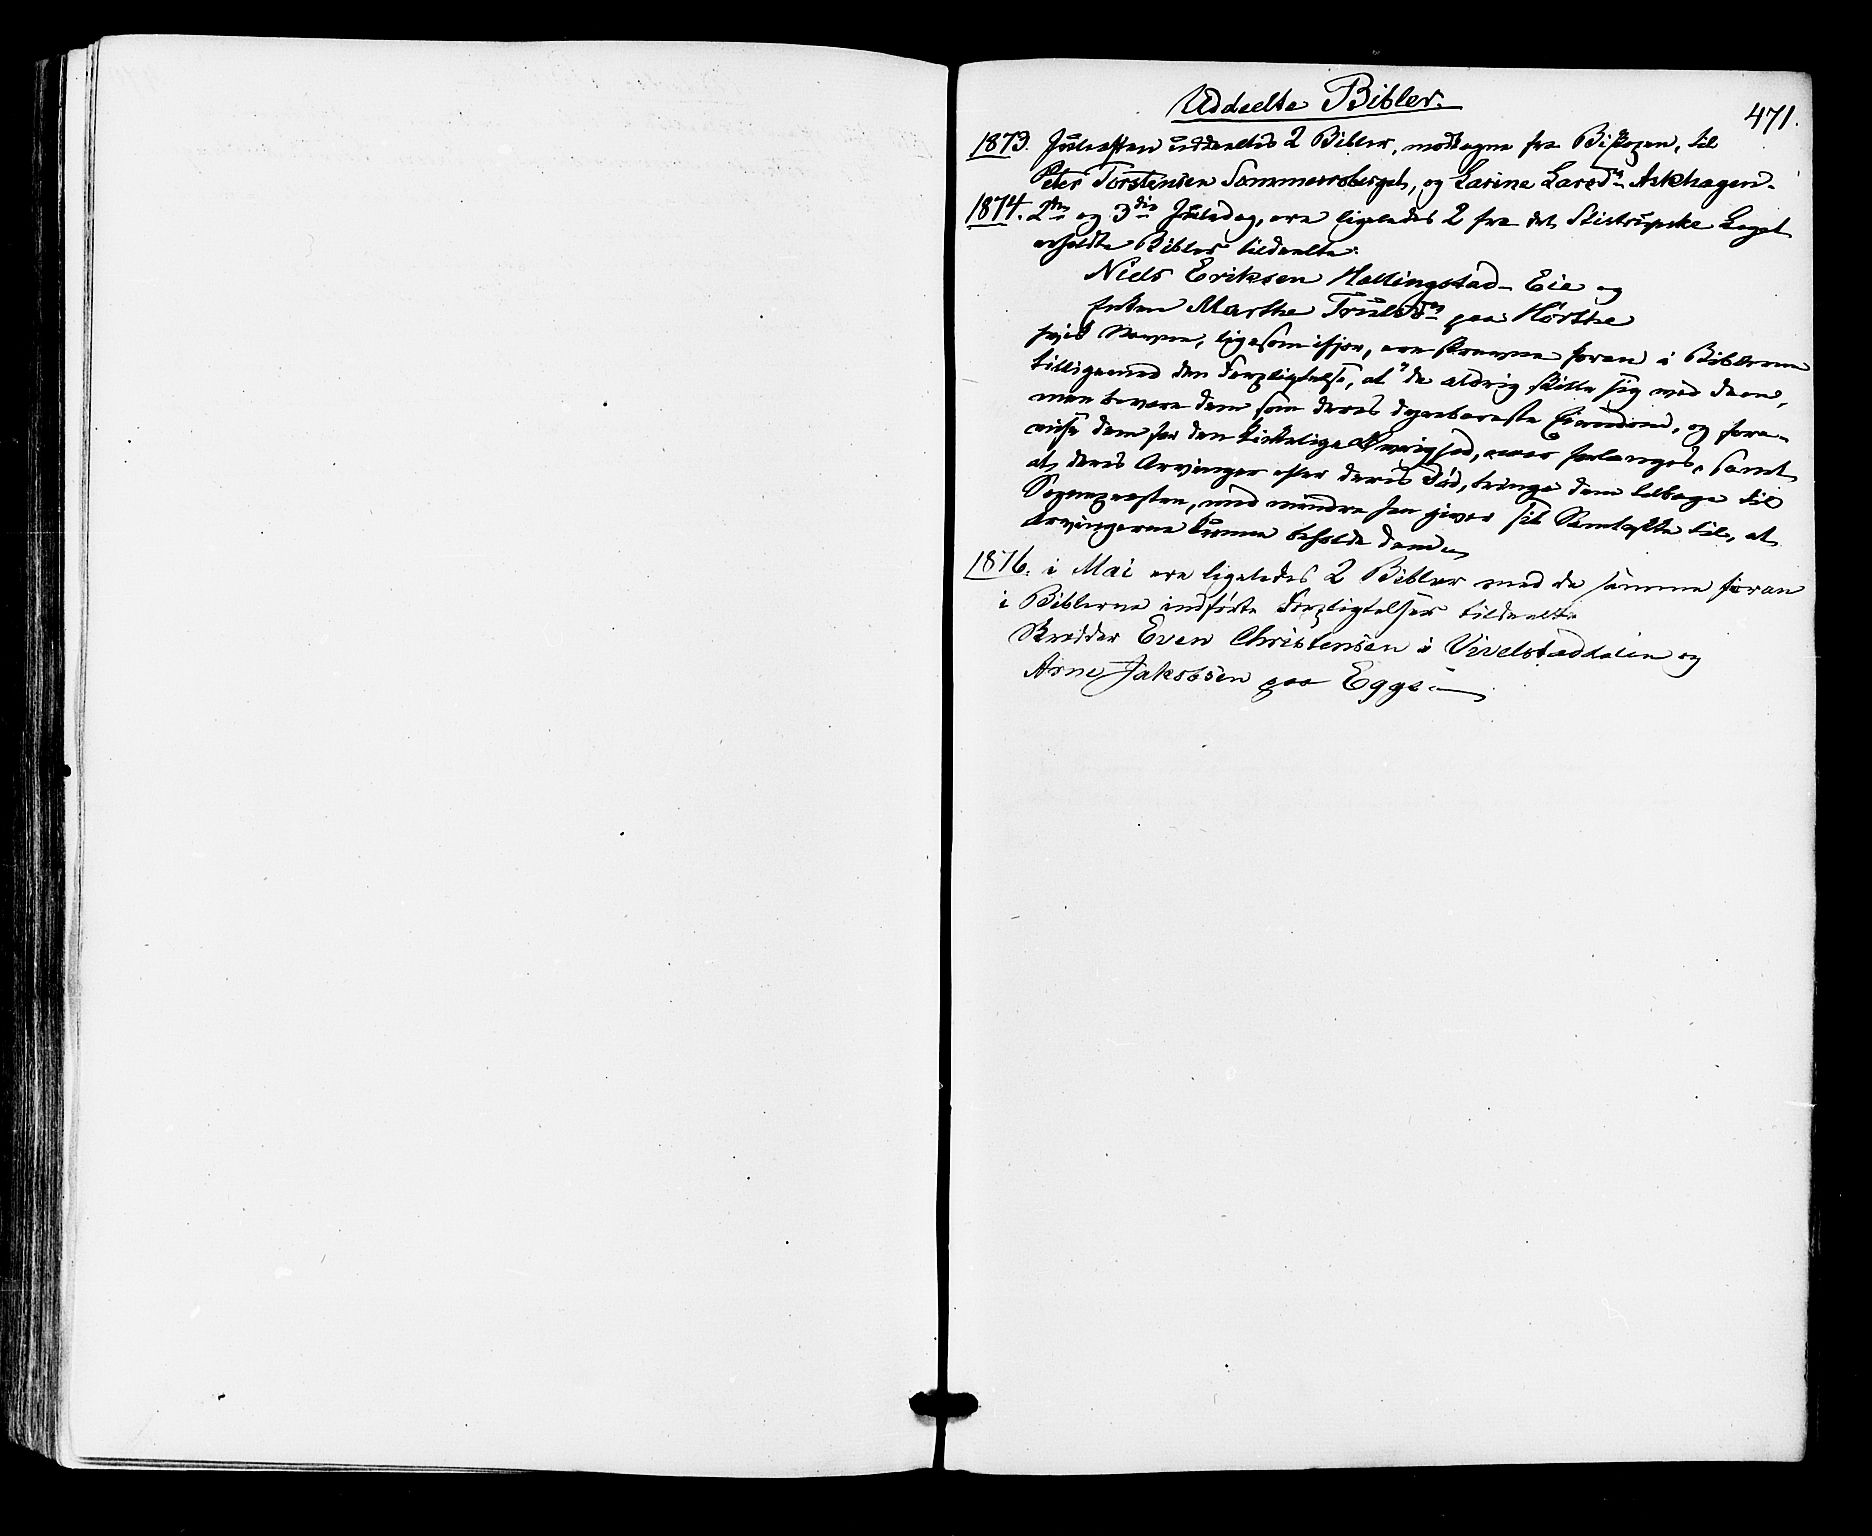 Uddeelte Bibler.
471.
1873. Juleaften uddeeltes 2 Bibler, modtagne fra Biskopen, til
Peter Torstensen Sommersberget, og Larine Larsd. Askhagen.
1874. 2den og 3die Juledag, ere ligeledes 2 fra det Legat
erholdte Bibler tildeelte:
Niels Eriksen Hallingstad-Eie og
Enken Marthe Trulsd. paa Hørthe
hvis Navne, ligesom ifjor, ere skrevne foran i Biblerne
tilligemed den Forpligtelse, at "de aldrig skille sig ved dem,
men bevare dem som deres dyrebareste Eiendom, og fore-
vise dem for den kirkelige Øvrighed, naar forlanges, samt
at deres Arvinger efter deres Død, bringe dem tilbage til
Sognepresten, med mindre han giver sit Samtykke til, at
Arvingerne kunne beholde dem.
1876. i Mai ere ligeledes 2 Bibler med de samme foran
i Biblerne indførte Forpligtelser tildeelte
Skredder Even Christensen i Vevelstaddalen og
Arne Jakobsen paa Egge.